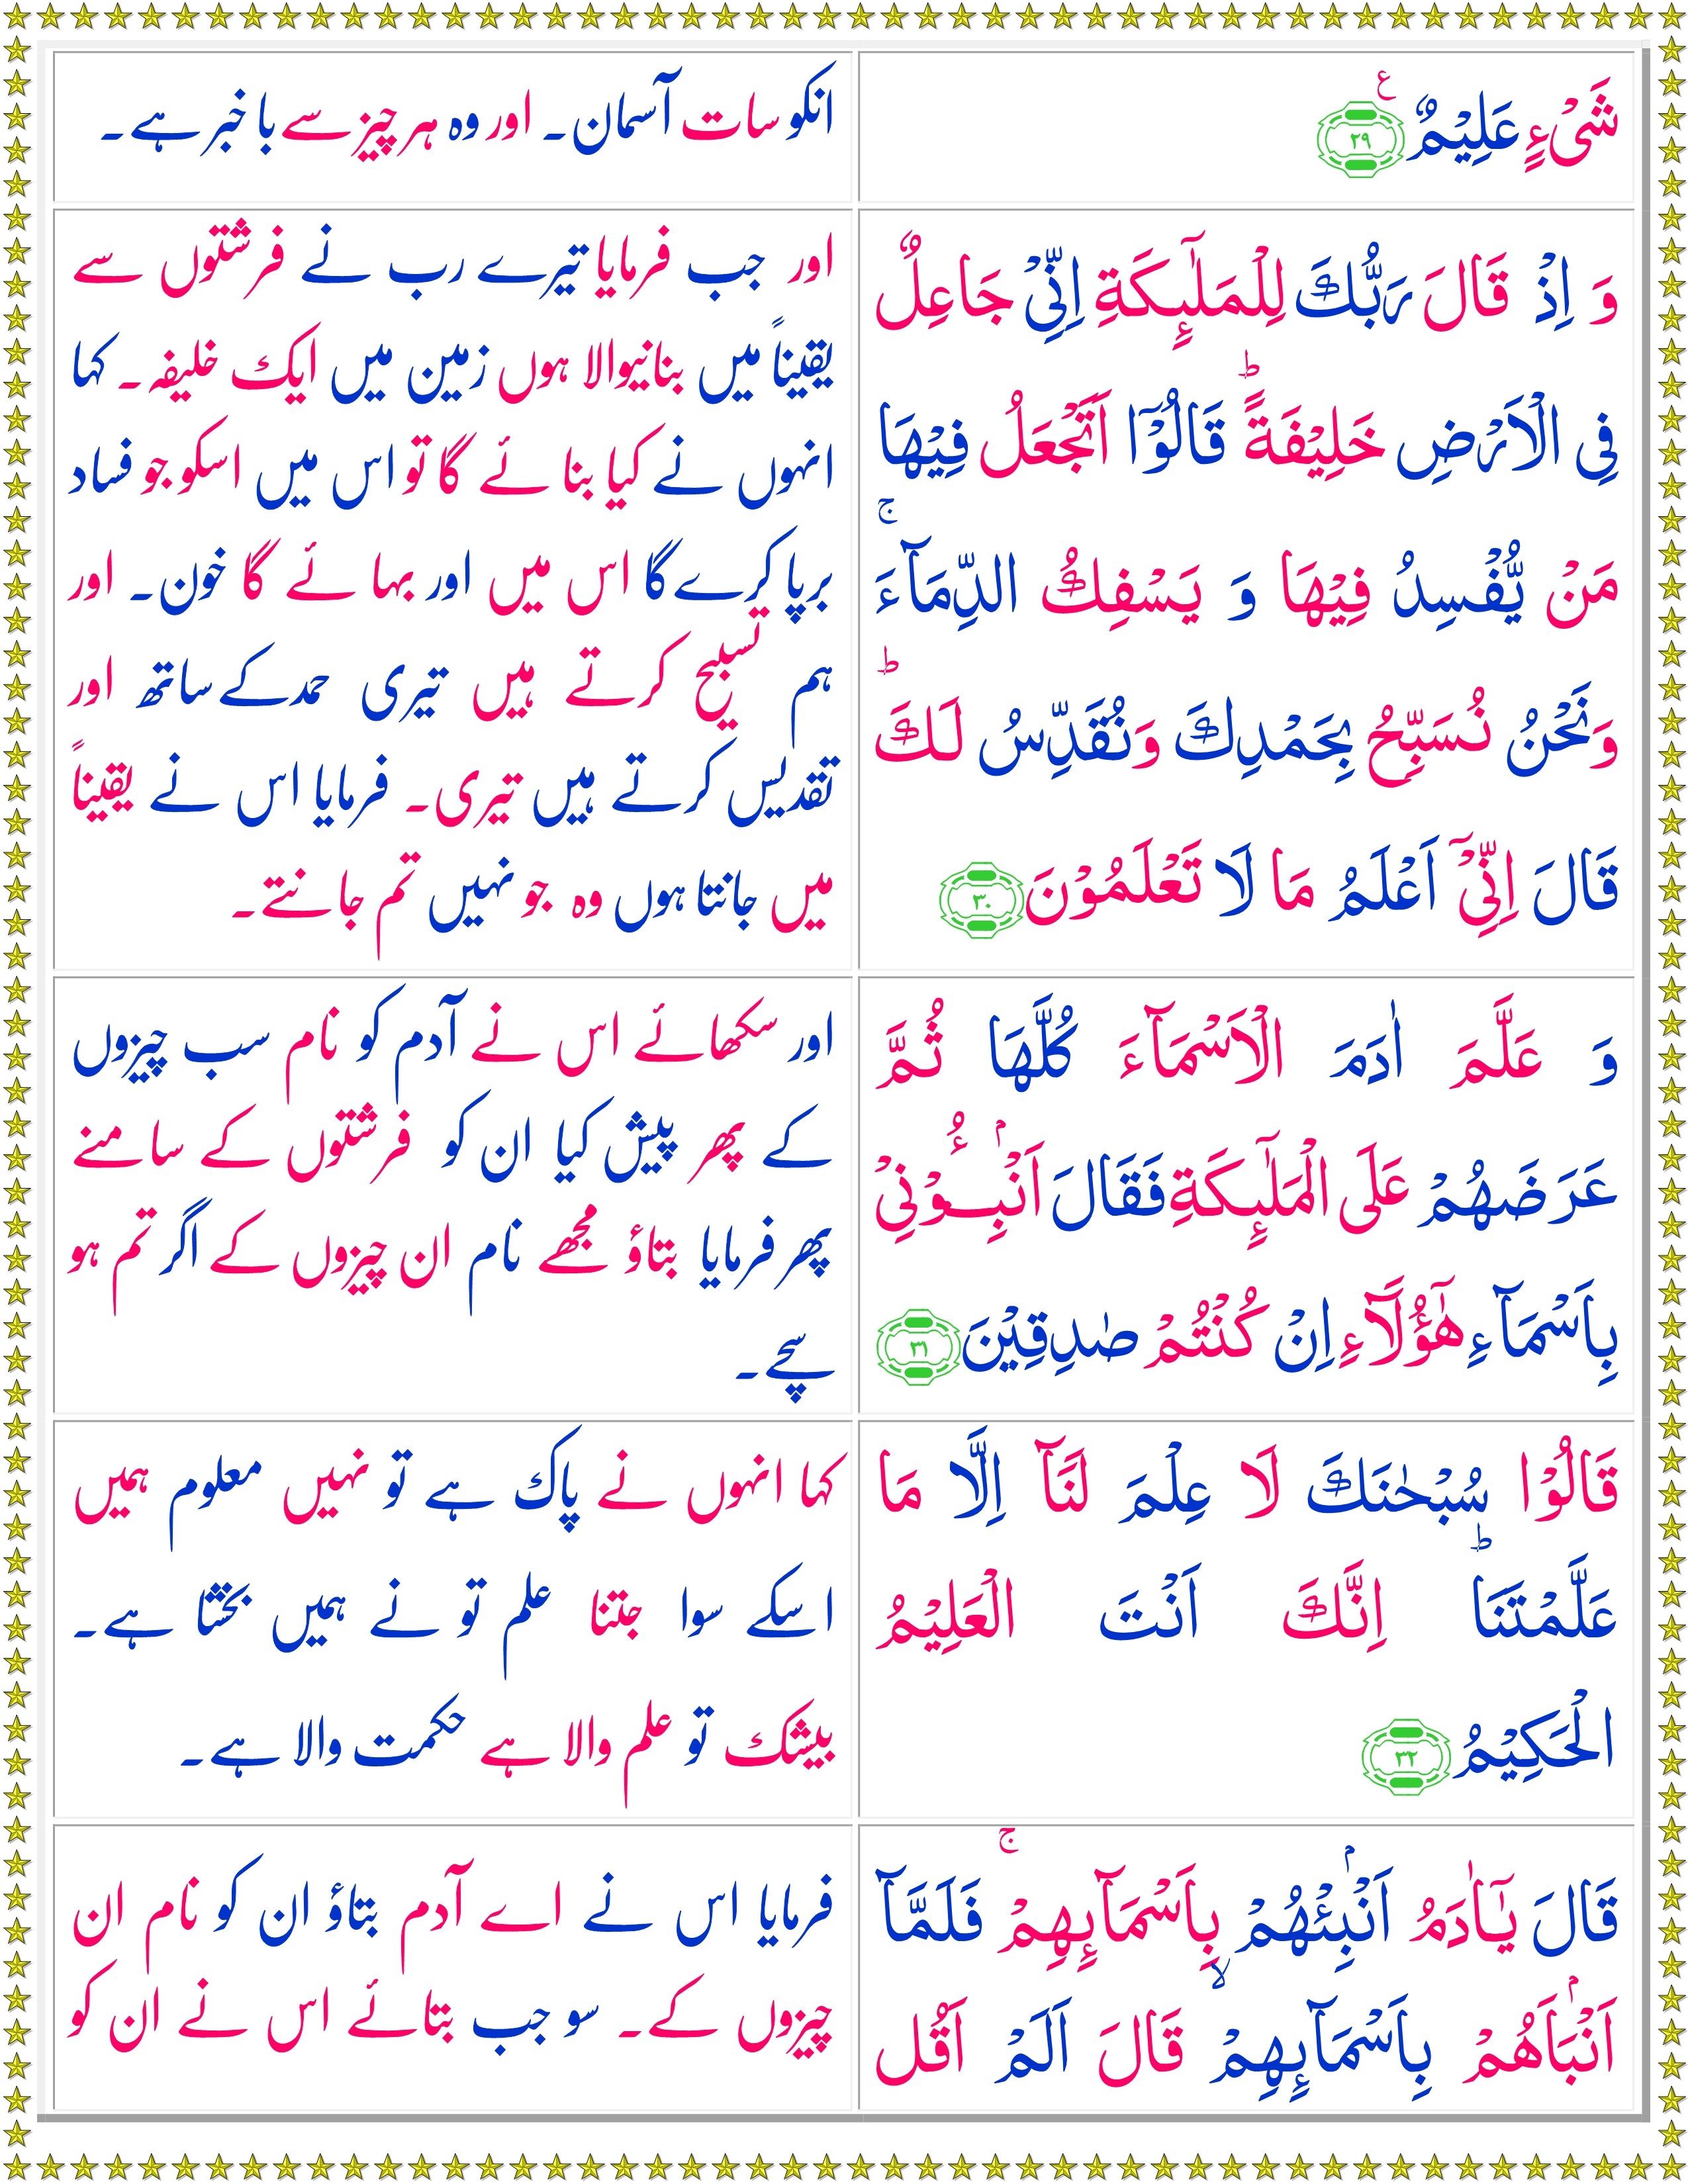 شَیْءٍ عَلِیْمٌ ﴿۲۹﴾ ع
انکو سات آسمان۔ اور وہ ہر چیز سے با خبر ہے۔
وَ اِذْ قَالَ رَبُّكَ لِلْمَلٰٓىِٕكَةِ اِنِّیْ جَاعِلٌ
فِی الْاَرْضِ خَلِیْفَةً ؕ قَالُوْۤا اَتَجْعَلُ فِیْهَا
مَنْ یُّفْسِدُ فِیْهَا وَ یَسْفِكُ الدِّمَآءَ ۚ
وَنَحْنُ نُسَبِّحُ بِحَمْدِكَ وَنُقَدِّسُ لَكَ ؕ
قَالَ اِنِّیْۤ اَعْلَمُ مَا لَا تَعْلَمُوْنَ ﴿۳۰﴾
اور جب فرمایا تیرے رب نے فرشتوں سے
یقیناً میں بنانیوالا ہوں زمین میں ایک خلیفہ۔ کہا
انہوں نے کیا بنا ئے گا تو اس میں اسکو جو فساد
برپا کرے گا اس میں اور بہا ئے گا خون۔ اور
ہم تسبیح کرتے ہیں تیری حمد کے ساتھ اور
تقدیس کرتے ہیں تیری۔ فرمایا اس نے یقیناً
میں جانتا ہوں وہ جو نہیں تم جانتے۔
وَ عَلَّمَ اٰدَمَ الْاَسْمَآءَ كُلَّهَا ثُمَّ
عَرَضَهُمْ عَلَی الْمَلٰٓىِٕكَةِ فَقَالَ اَنْۢبِـُٔوْنِیْ
بِاَسْمَآءِ هٰۤؤُلَآءِ اِنْ كُنْتُمْ صٰدِقِیْنَ ﴿۳۱﴾
اور سکھائے اس نے آدم کو نام سب چیزوں
کے پھر پیش کیا ان کو فرشتوں کے سامنے
پھر فرمایا بتاؤ مجھے نام ان چیزوں کے اگر تم ہو
سچے۔
قَالُوْا سُبْحٰنَكَ لَا عِلْمَ لَنَاۤ اِلَّا مَا
عَلَّمْتَنَا ؕ اِنَّكَ اَنْتَ الْعَلِیْمُ
الْحَكِیْمُ ﴿۳۲﴾
کہا انہوں نے پاک ہے تو نہیں معلوم ہمیں
اسکے سوا جتنا علم تو نے ہمیں بخشا ہے۔
بیشک تو علم والا ہے حکمت والا ہے۔
قَالَ یٰۤاٰدَمُ اَنْۢبِئْهُمْ بِاَسْمَآىِٕهِمْ ۚ فَلَمَّاۤ
اَنْۢبَاَهُمْ بِاَسْمَآىِٕهِمْ ۙ قَالَ اَلَمْ اَقُل
فرمایا اس نے اے آدم بتاؤ ان کو نام ان
چیزوں کے۔ سو جب بتائے اس نے ان کو